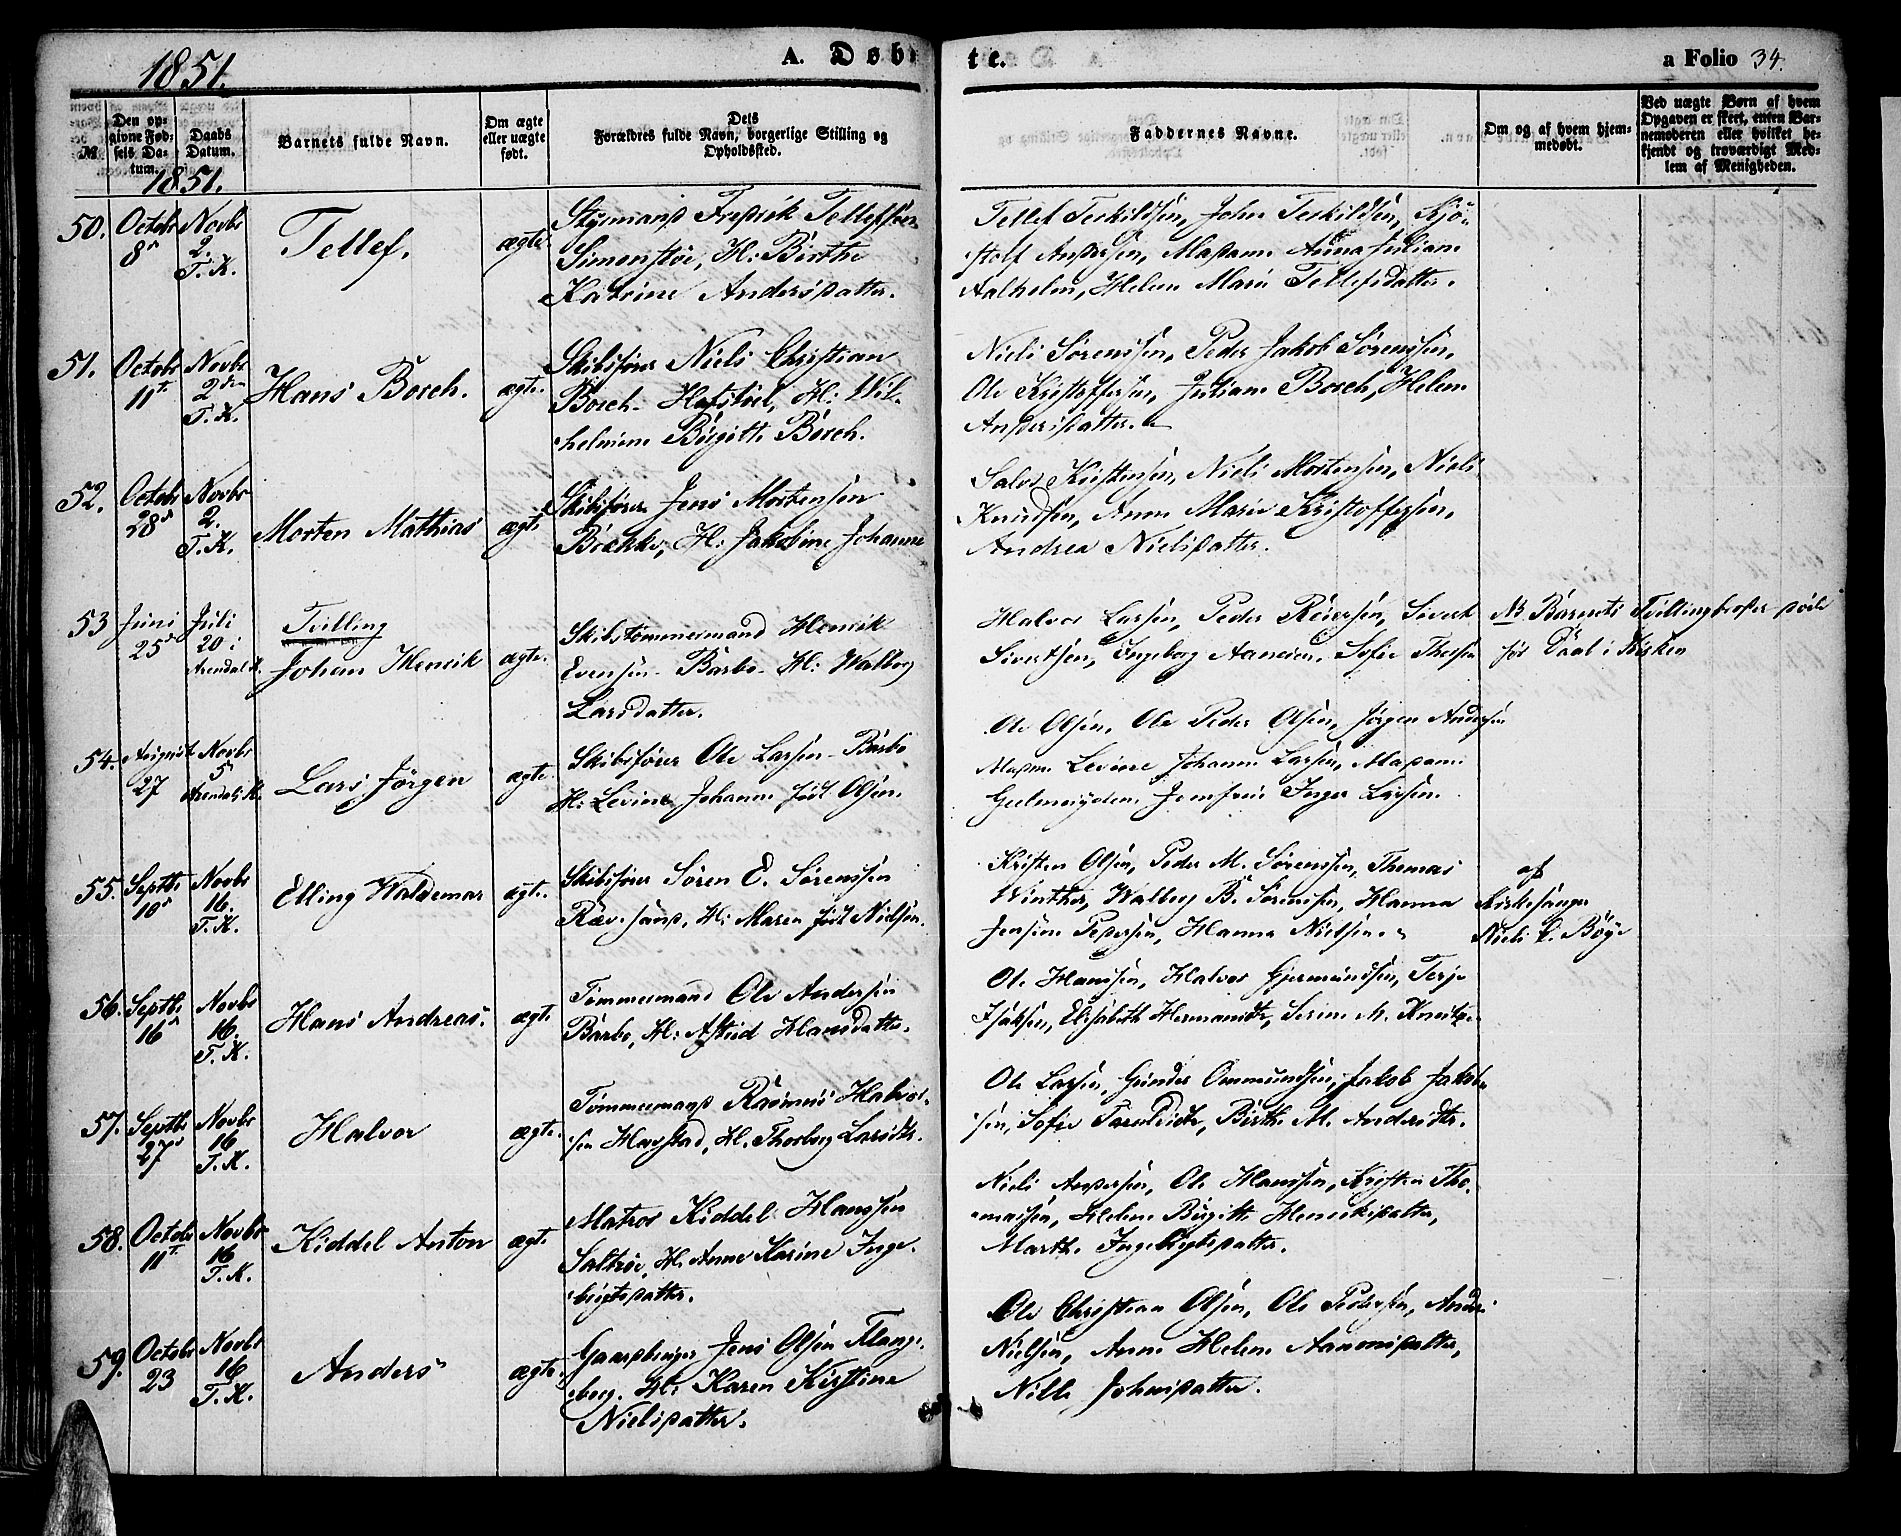 1851.
A. Døbte.
a Folio 34.
№
Den opgivne Fødsels Datum.
Daabs Datum.
Barnets fulde Navn.
Om ægte eller uægte født.
Dets Forældres fulde Navn, borgerlige Stilling og Opholdssted.
Faddernes Navne.
Om og af hvem hjemmedøbt.
Ved uægte Børn af hvem Opgaven er skeet, enten Barnemoderen eller hvilket bekjendt og troværdigt Medlem af Menigheden.
1851.
50. Octobr 8de Novbr 2. T. K.
Tellef.
ægte
Styrmand Fredrik Tellefsen
Simonstøe, H: Birthe
Katrine Andersdatter.
Tellef Terkildsen, John Terkildsen, Kjö-
stolf Andersen, Madame Anna Juliane
Aalholm, Helene Marie Tellefsdatter.
51. Octobr 11te Novbr 2den T. K.
Hans Borch.
ægte.
Skibsfører Niels Christian
Borch - H: Wil-
helmine Birgitte Borch.
Niels Sørensen, Peder Jakob Sørensen,
Ole Kristoffersen, Juliane Borch, Helene
Andersdatter.
52. Octobr 28de Novbr 2. T. K.
Morten Mathias
ægte
Skibsfører Jens Mortensen
Brekke, H: Jakobine Johanne
Salve Kristensen, Niels Mortensen, Niels
Knudsen, Anne Marie Kristoffersen,
Andrea Nielsdatter.
53 Juni 25de Juli 20 i Arendal K.
Tvilling
Johan Henrik
ægte.
Skibstømmermand Henrik
Evensen - Barbo - H: Walborg
Larsdatter.
Halvor Larsen, Peder Reiersen, Sivert
Sivertsen, Ingeborg Aanesen, Sofie
NB Barnets Tvillingbroder døde
før Daab i Kirken
54. August 27 Novbr 5 Arendals K.
Lars Jörgen
ægte
Skibsfører Ole Larsen - Barbo
H: Levine Johanne født Olsen.
Ole Olsen, Ole Peder Olsen, Jörgen Andersen
Madme Levine Johanne Larsen, Madame
Geelmeyden, Jomfru Inger Larsen.
55. Septbr 10de Novbr 16. T. K.
Elling Waldemar
ægte.
Skibsfører Søren E. Sørensen
Rævesand, H: Maren født Nielsen.
Kristen Olsen, Peder M. Sørensen, Thomas
Winther, Walborg B. Sørensen, Hanna
Jensine Pedersen, Hanna Nielsen.
af
Kirkesanger
Niels C. Böye
56. Septbr 16de Novbr 16. T. K.
Hans Andreas.
ægte
Tømmermand Ole Andersen
Barbo, H: Astrid Hansdatter.
Ole Hanssen, Halvor Gjermundsen, Terje
Isaksen, Elisabeth Hermansdtr, Serine M.
57. Septbr 27de Novbr 16 T. K.
Halvor
ægte.
Tømmermand Rasmus Halvor-
sen Havstad, H. Thorborg Larsdtr.
Ole Larsen, Gunder Ommundsen, Jakob Jakob-
sen, Sofie Taraldsdtr, Birthe M. Andersdtr.
58. Octobr 11te Novbr 16 T. K.
Kiddel Anton
ægte
Matros Kiddel Hanssen
Saltrøe, H. Anne Karine Inge-
brigtsdatter.
Niels Andersen, Ole Hanssen, Kristen Tho-
massen, Helene Birgitte Henriksdatter,
Marthe Ingebrigtsdatter.
59. Octobr 23 Novbr 16 T. K.
Anders
ægte.
Gaardbruger Jens Olsen Flange-
borg. H: Karen Kirstine
Nielsdatter.
Ole Christian Olsen, Ole Pedersen, Anders
Nielsen, Anne Helene Aanonsdatter,
Nille Johnsdatter.